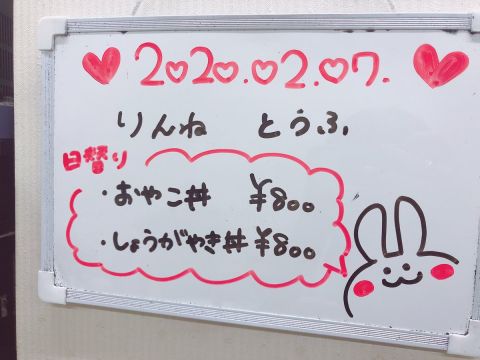 2020.02.07.
りんね とうふ
日替り
・おやこ丼 ¥800
・しょうがやき丼 ¥800